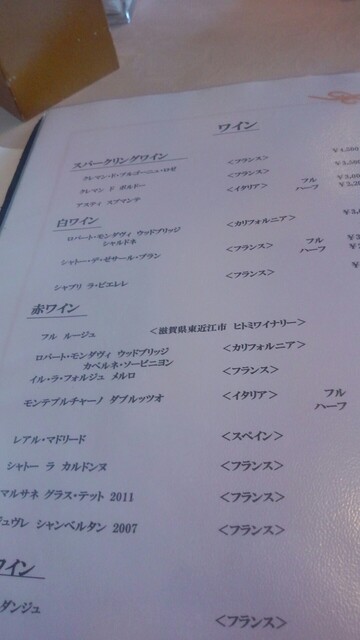 ワイン
スパークリングワイン
クレマン・ド・ブルゴーニュ・ロゼ <フランス> ¥4,500
クレマン ド ボルドー <フランス>
アスティ スプマンテ <イタリア> フル
ハーフ
白ワイン
ロバート・モンダヴィ ウッドブリッジ <カリフォルニア>
シャルドネ
シャトー・デ・ゼサール・ブラン <フランス> フル
ハーフ
シャブリ ラ・ピエレレ <フランス>
赤ワイン
フル ルージュ <滋賀県東近江市 ヒトミワイナリー>
ロバート・モンダヴィ ウッドブリッジ <カリフォルニア>
カベルネ・ソービニヨン
イル・ラ・フォルジュ メルロ <フランス>
モンテプルチャーノ ダブルッツオ <イタリア> フル
ハーフ
レアル・マドリード <スペイン>
シャトー ラ カルドンヌ <フランス>
マルサネ グラス・テット 2011 <フランス>
ヴュヴレ シャンベルタン 2007 <フランス>
ワイン
ダンジュ <フランス>